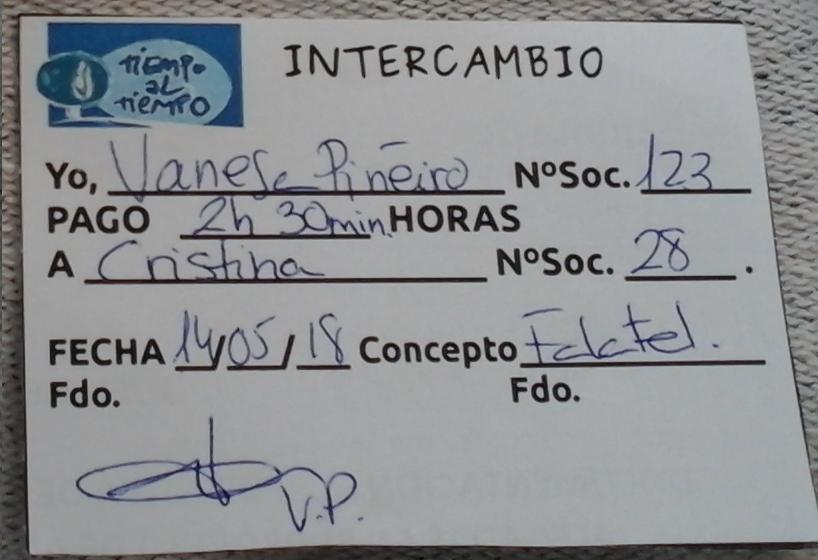 TIEMPO
AL
TIEMPO
INTERCAMBIO
Yo, Vanesa Piñeiro NºSoc. 123
PAGO 2h 30min. HORAS
A Cristina NºSoc. 28.
FECHA 14/05/18 Concepto
Fdo. Fdo.
V.P.